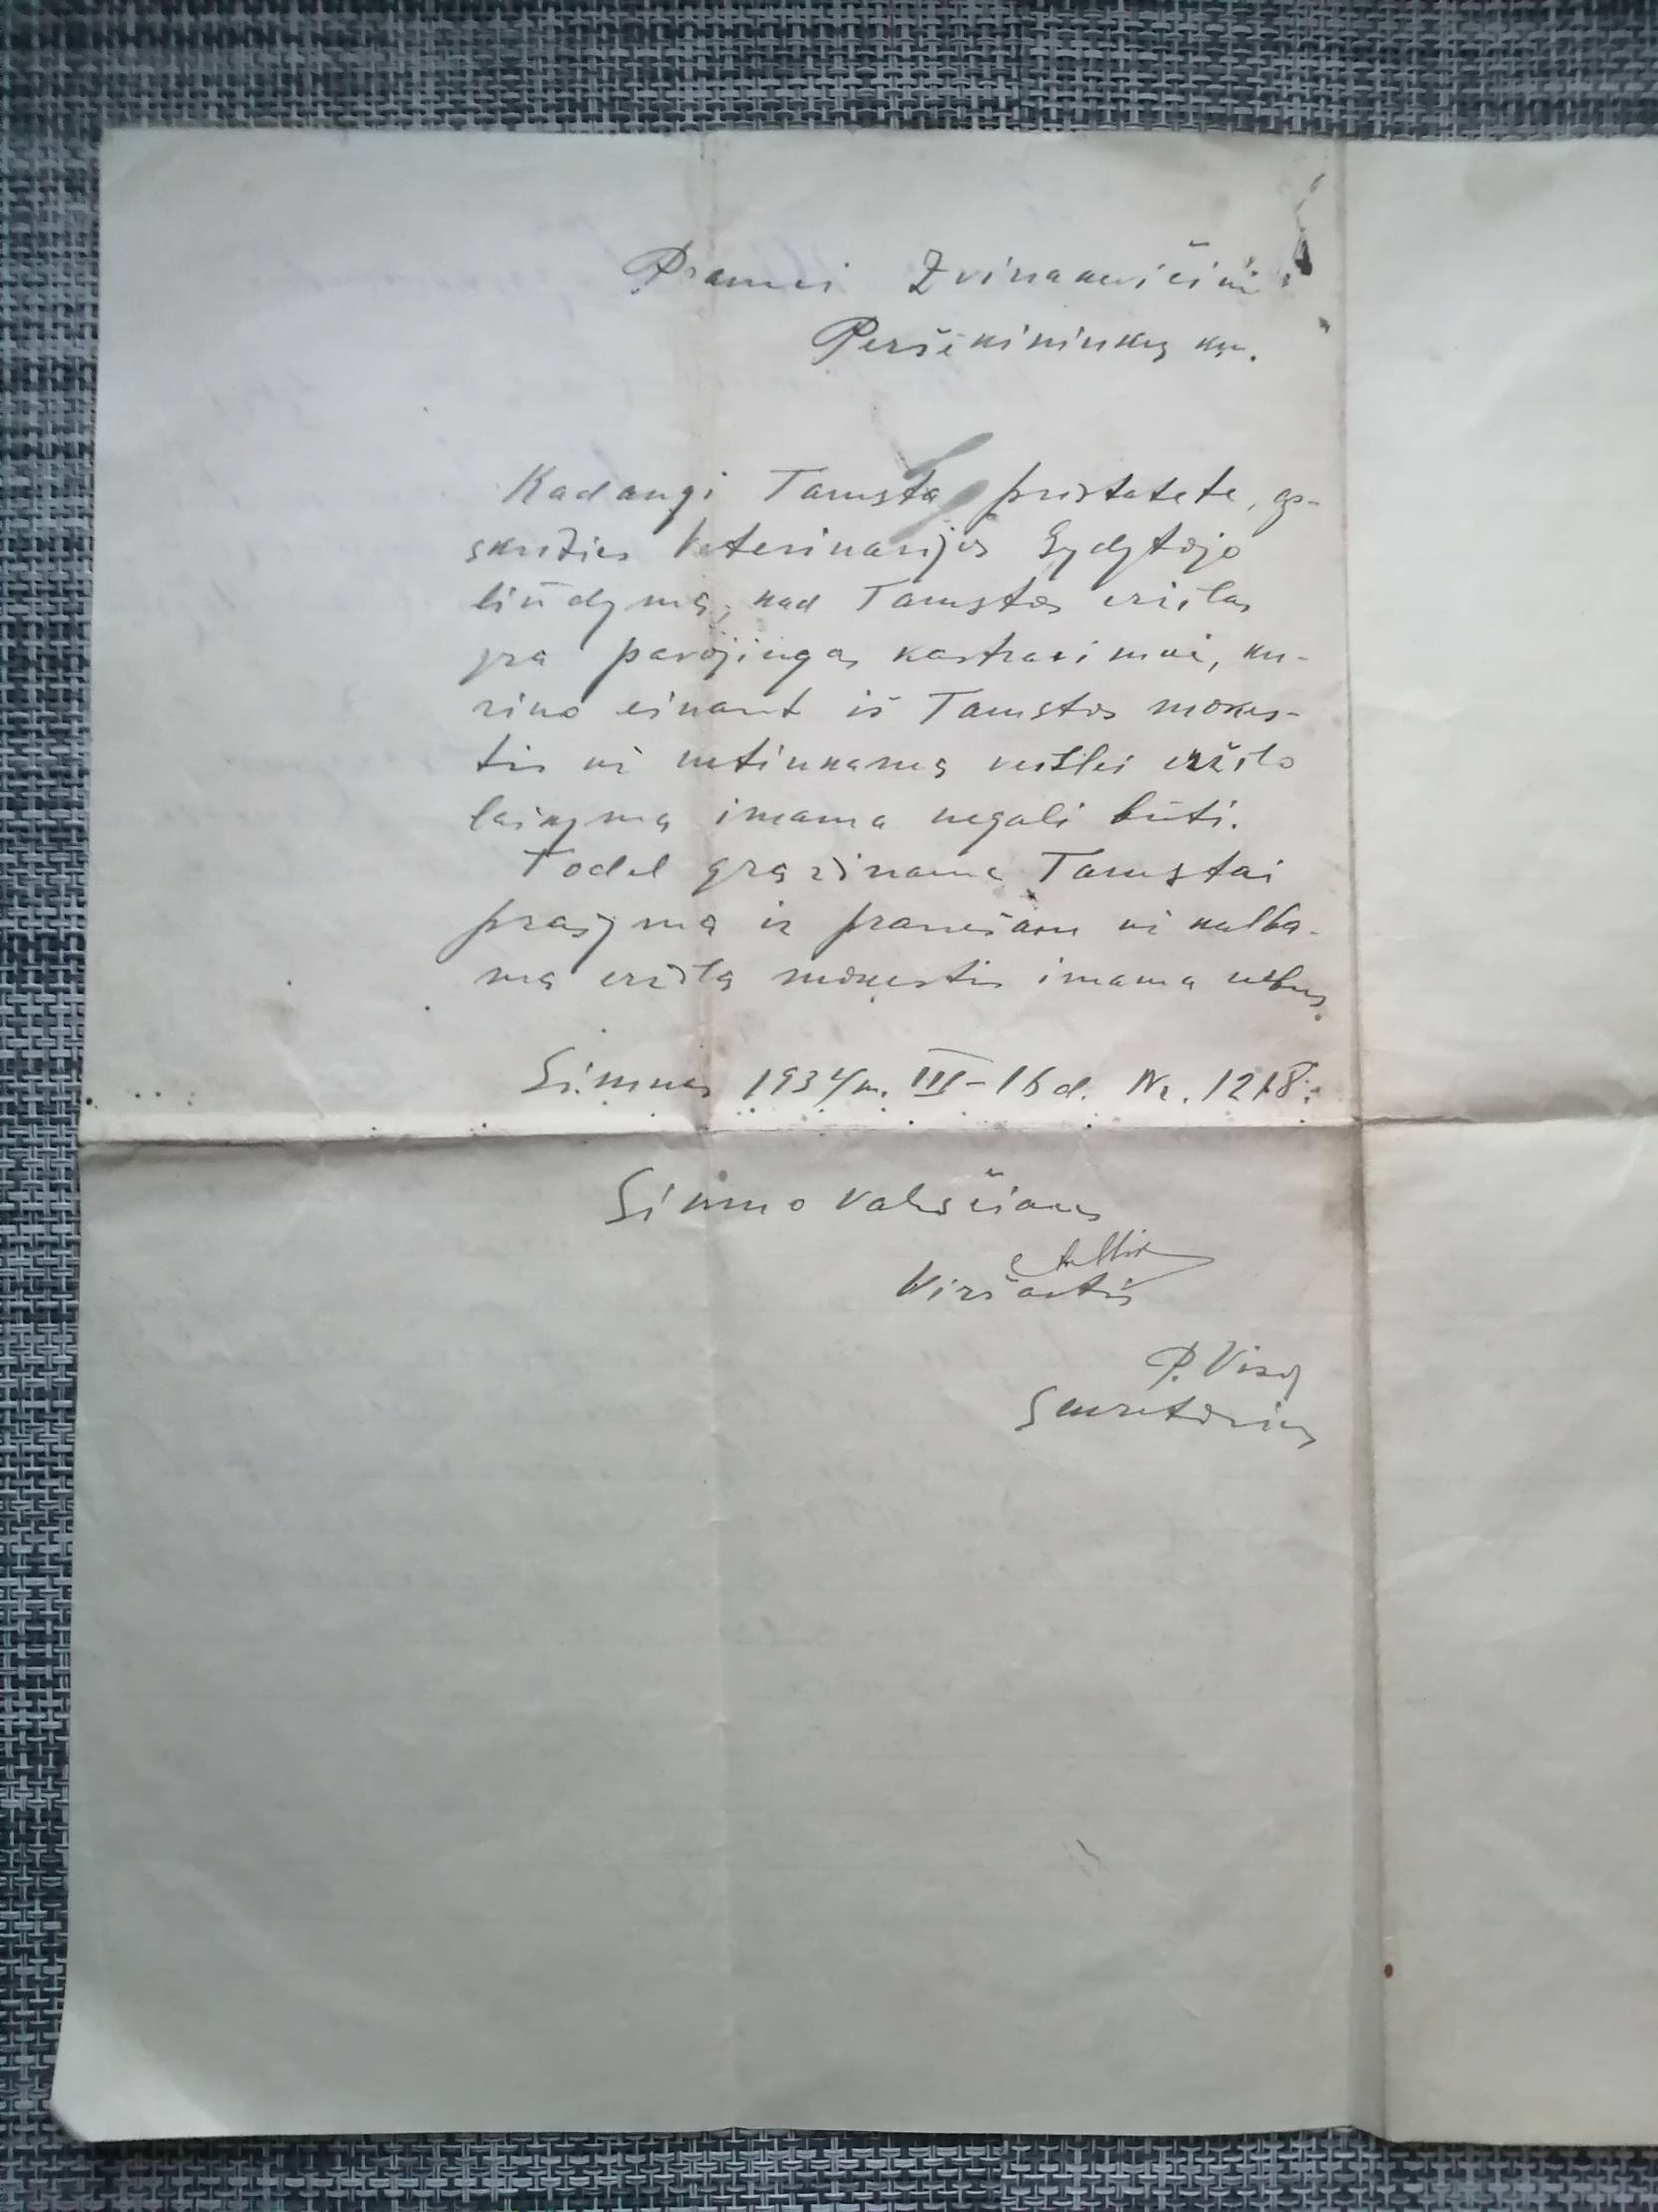 Pranui Zvinakevičiui
Peršėkininkų km.
Kadangi Tamsta pristatete, ap-
skrities Veterinarijos Gydytojo
liūdymą, kad Tamstos eržilas
yra pavojingas kastravimui, ku-
rino einant iš Tamstos mokes-
tis už netinkamą veislei eržilo
laikymą imama negali būti.
Todel grązinama Tamstai
prašymą ir pranešam už kalba-
mą eržilą mokestis imama nebus.
Simnas 1934 m. III-16 d. Nr. 1218.
Simno Valsčiaus
Viršaitis
P.
Sekretorius